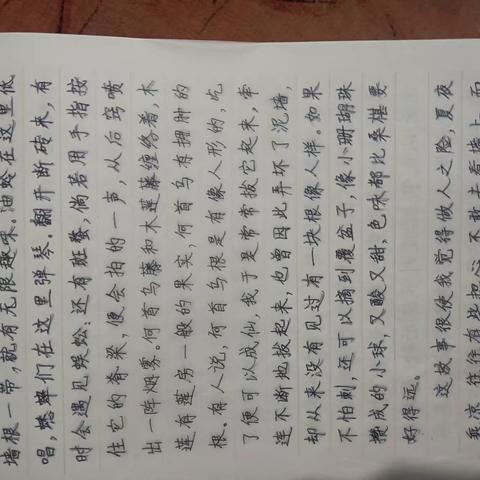 墙根一带，就有无限趣味。油蛉在这里低
唱，蟋蟀们在这里弹琴。翻开断砖来，有
时会遇见蜈蚣；还有斑蝥，倘若用手指按
住它的脊梁，便会拍的一声，从后窍喷
出一阵烟雾。何首乌藤和木莲藤缠络着，木
莲有莲房一般的果实，何首乌有拥肿的
根。有人说，何首乌根是有像人形的，吃
了便可以成仙，我于是常常拔它起来，牵
连不断地拔起来，也曾因此弄坏了泥墙，
却从来没有见过有一块根像人样。如果
不怕刺，还可以摘到覆盆子，像小珊瑚珠
攒成的小球，又酸又甜，色味都比桑椹要
好得远。
这故事很使我觉得做人之险，夏夜
乘凉，往往有些担心，不敢去看墙上，而